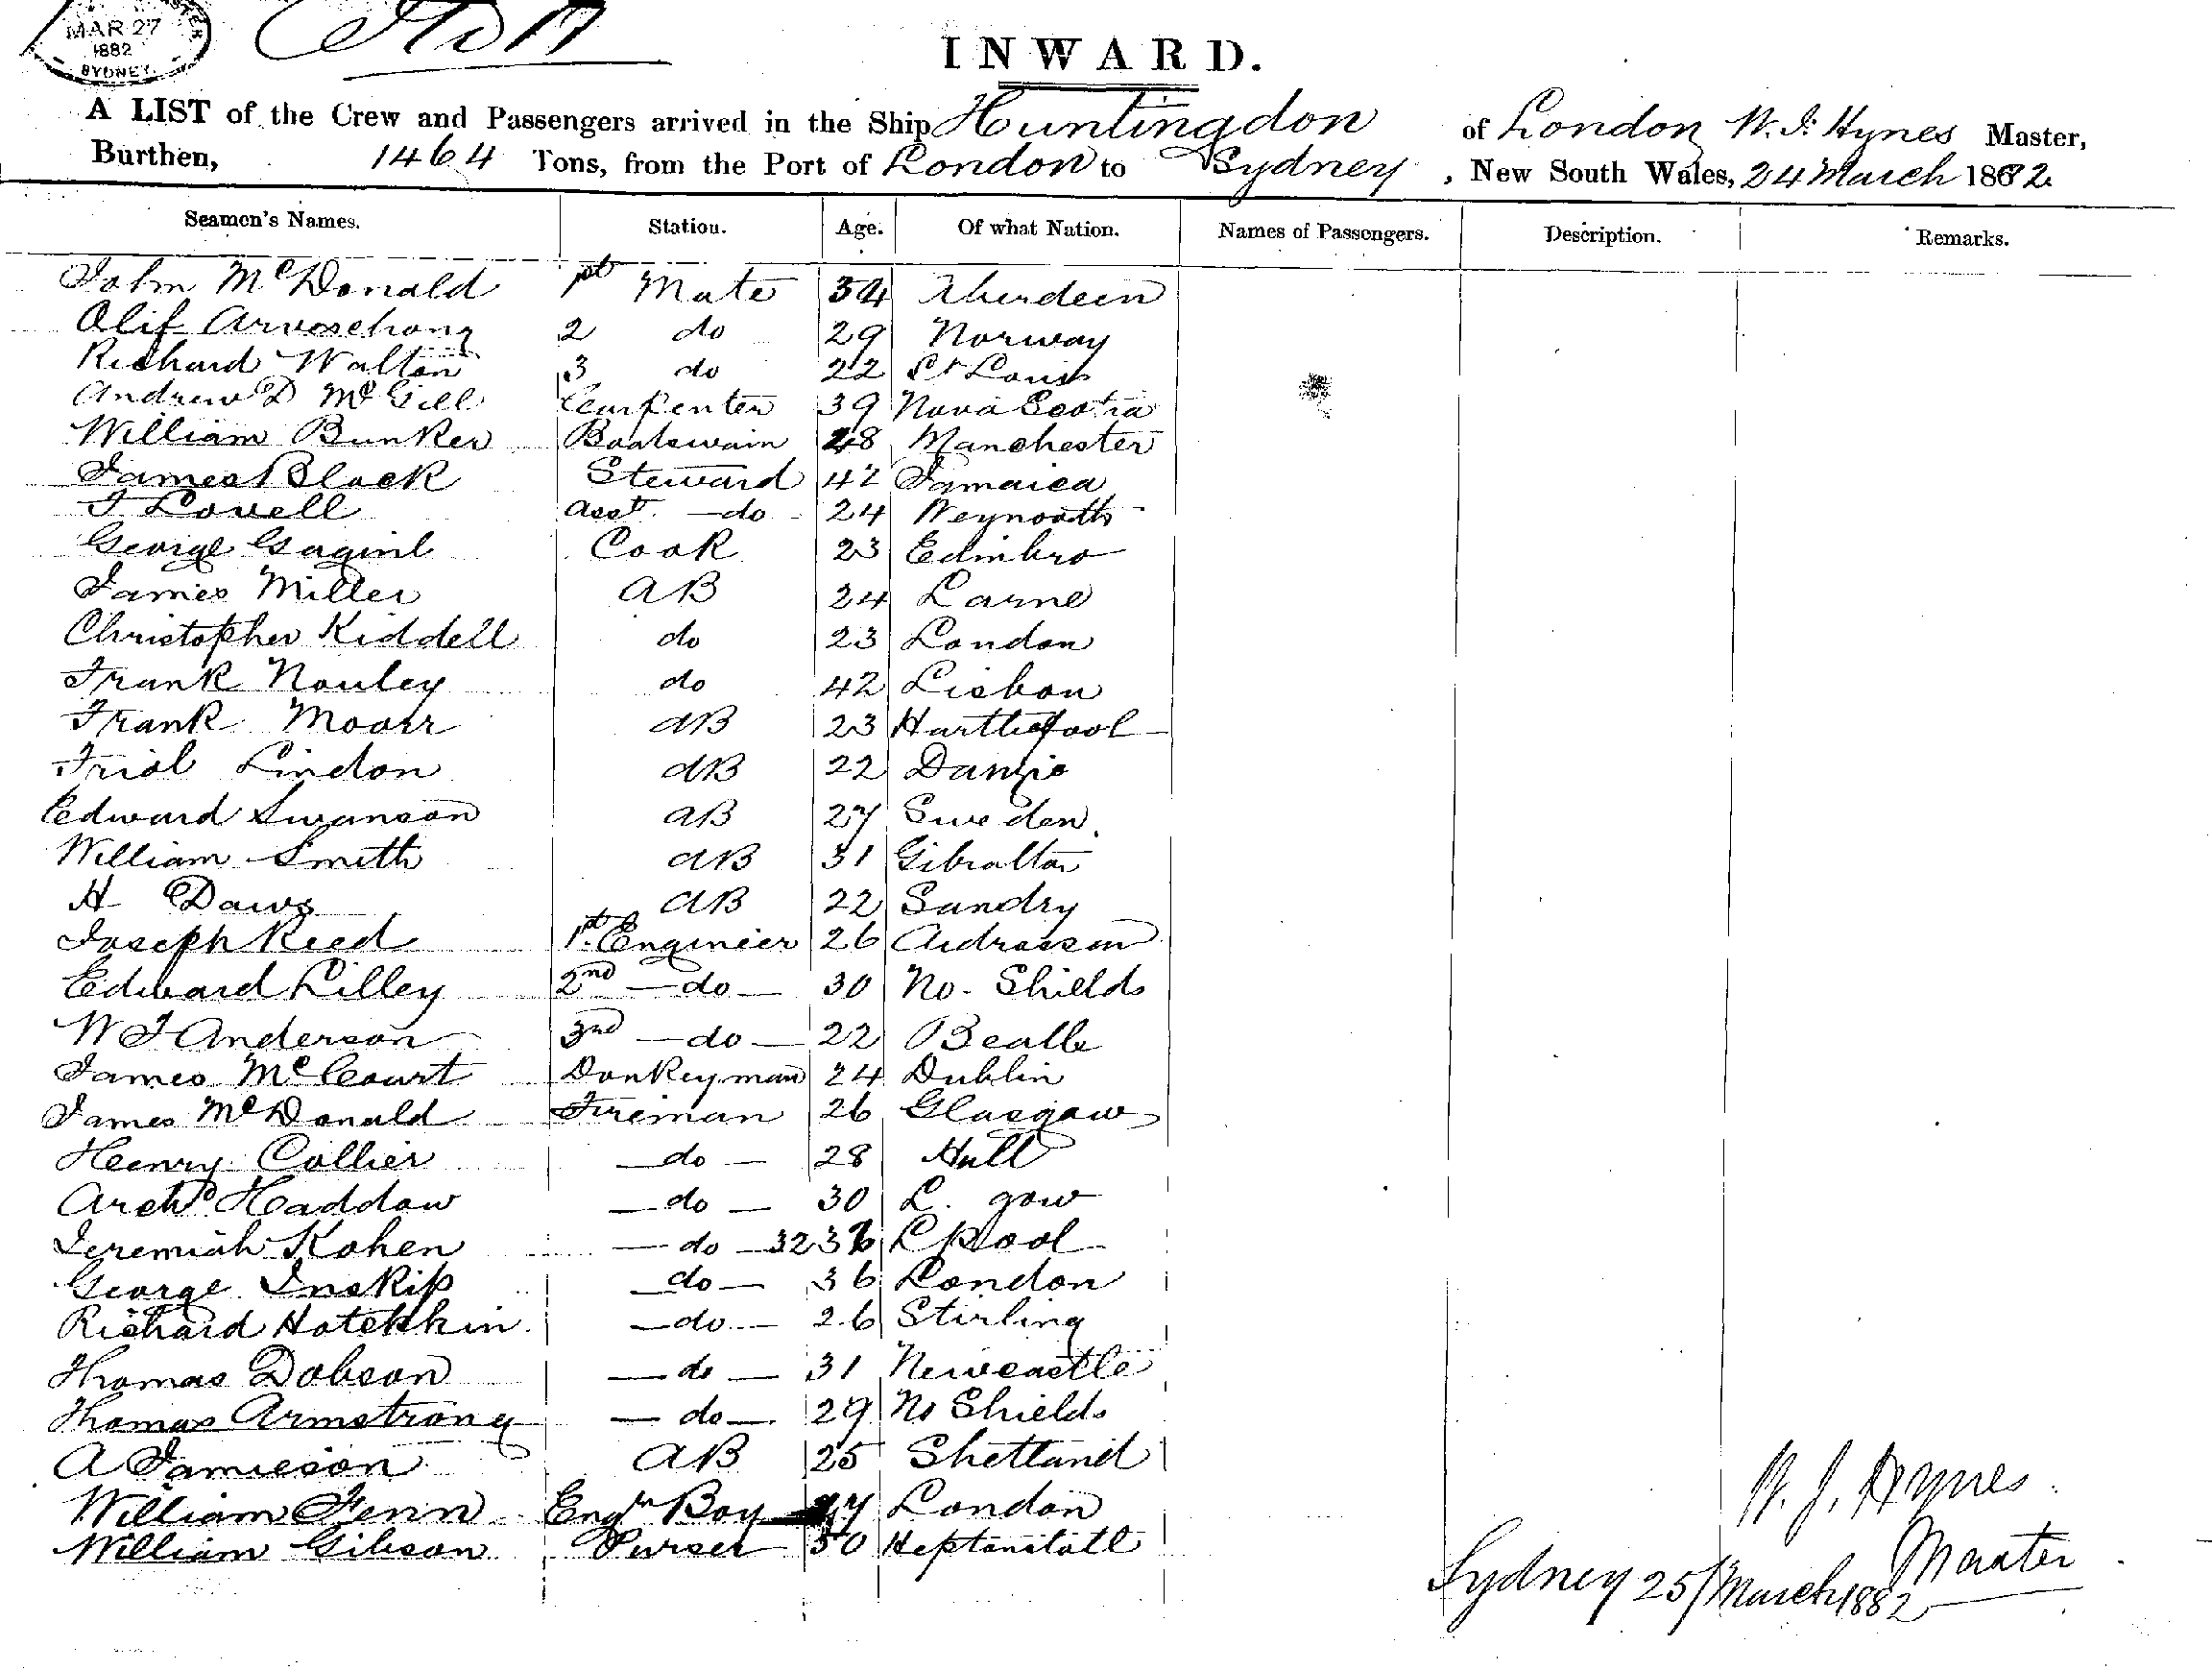 MAR 27
1882
SYDNEY
INWARD.
A LIST of the Crew and Passengers arrived in the Ship Huntingdon of London W. J. Hynes Master,
Burthen, 1464 Tons, from the Port of London to Sydney, New South Wales, 24 March 1882.
Seamen's Names. Station. Age. Of what Nation. Names of Passengers. Description. Remarks.
John McDonald 1st Mate 34 Aberdeen
Olif 2 do 29 Norway
Richard Walton 3 do 22 St Louis
Andrew D McGill Carpenter 39 Nova Scotia
William Bunker Boatswain 28 Manchester
James Black Steward 42 Jamaica
J Lovell asst. — do 24 Weymouth
George Cook 23 Edinbro
James Miller AB 24 Larne
Christopher Kiddell do 23 London
Frank Nouley do 42 Lisbon
Frank Moorr AB 23 Hartlepool
Lindon AB 22 Danzic
Edward Swanson AB 27 Sweden
William Smith AB 31 Gibraltar
H Daws AB 22 Sundry
Joseph Reed 1st Engineer 26 Ardrossan
Edward Lilley 2nd — do — 30 No. Shields
W J Anderson 3rd — do — 22
James McCourt Donkeyman 24 Dublin
James McDonald Fireman 26 Glasgow
Henry Collier — do — 28 Hull
Archd Haddow — do — 30 L. gow
Jeremiah Kohen — do — 32 36 LPool
George Inskip — do — 36 London
Richard Hotchkin — do — 26 Stirling
Thomas Dobson — do — 31 Newcastle
Thomas Armstrong — do — 29 No Shields
A Jamieson AB 25 Shetland
William Fenn Engr Boy 17 London
William Gibson Purser 50 Heptonstall
W. J. Hynes
Master
Sydney 25/March 1882